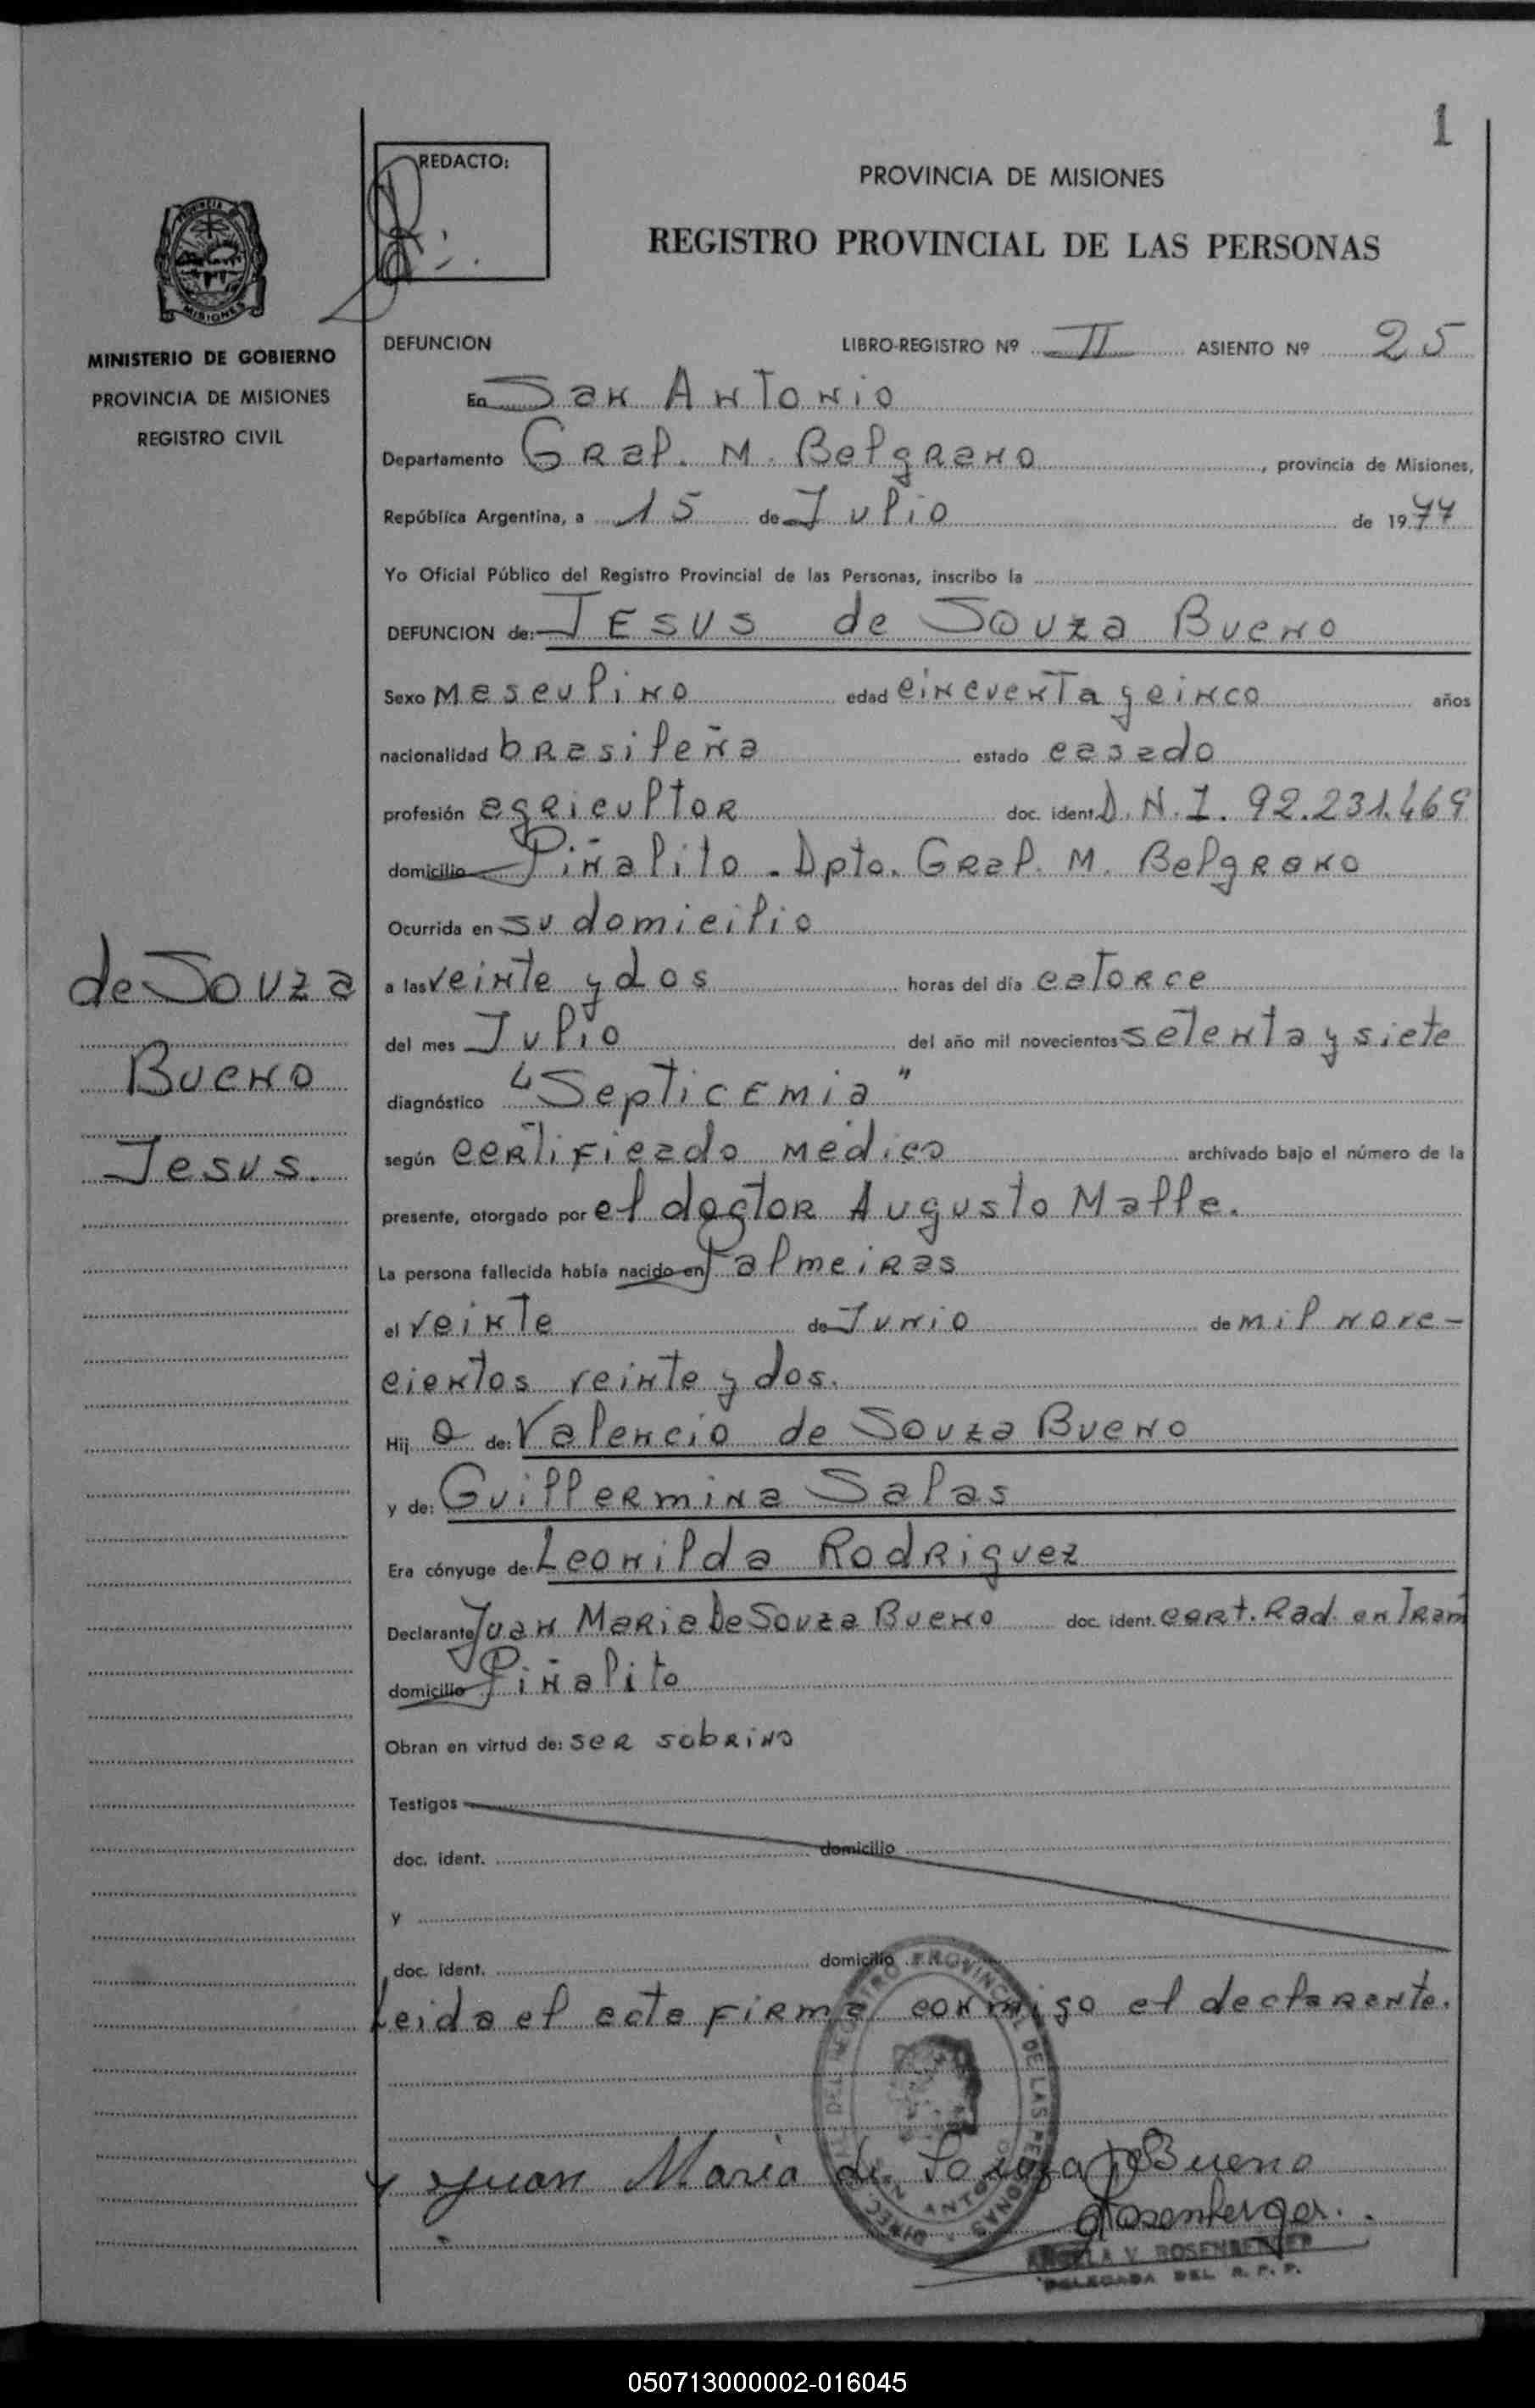 1
REDACTO:
PROVINCIA DE MISIONES
REGISTRO PROVINCIAL DE LAS PERSONAS
PROVINCIA
MISIONES
MINISTERIO DE GOBIERNO
PROVINCIA DE MISIONES
REGISTRO CIVIL
DEFUNCION LIBRO-REGISTRO Nº II ASIENTO Nº 25
En San Antonio
Departamento Gral. M. Belgrano, provincia de Misiones,
República Argentina, a 15 de Julio de 1977
Yo Oficial Público del Registro Provincial de las Personas, inscribo la
DEFUNCION de: JESUS de Souza Bueno
Sexo masculino edad cincuenta y cinco años
nacionalidad brasileña estado casado
profesión agricultor doc. ident. D.N.I. 92.231.469
domicilio Piñalito. Dpto. Gral. M. Belgrano
Ocurrida en su domicilio
a las veinte y dos horas del día catorce
del mes Julio del año mil novecientos setenta y siete
diagnóstico "Septicemia"
según certificado médico archivado bajo el número de la
presente, otorgado por el doctor Augusto Malle.
La persona fallecida había nacido en Palmeiras
el veinte de Junio de mil nove-
cientos veinte y dos.
Hij o de: Valencio de Souza Bueno
y de: Guillermina Salas
Era cónyuge de: Leonilda Rodriguez
Declarante Juan Maria De Souza Bueno doc. ident. cert. Rad. en Tram
domicilio Piñalito
Obran en virtud de: ser sobrino
Testigos
doc. ident. domicilio
y
doc. ident. domicilio
Leida el acta firma conmigo el declarante.
de Souza
Bueno
Jesus.
Juan Maria de Souza Bueno
Rosenberger.
ANGELA V. ROSENBERGER
DELEGADA DEL R. P. P.
050713000002-016045